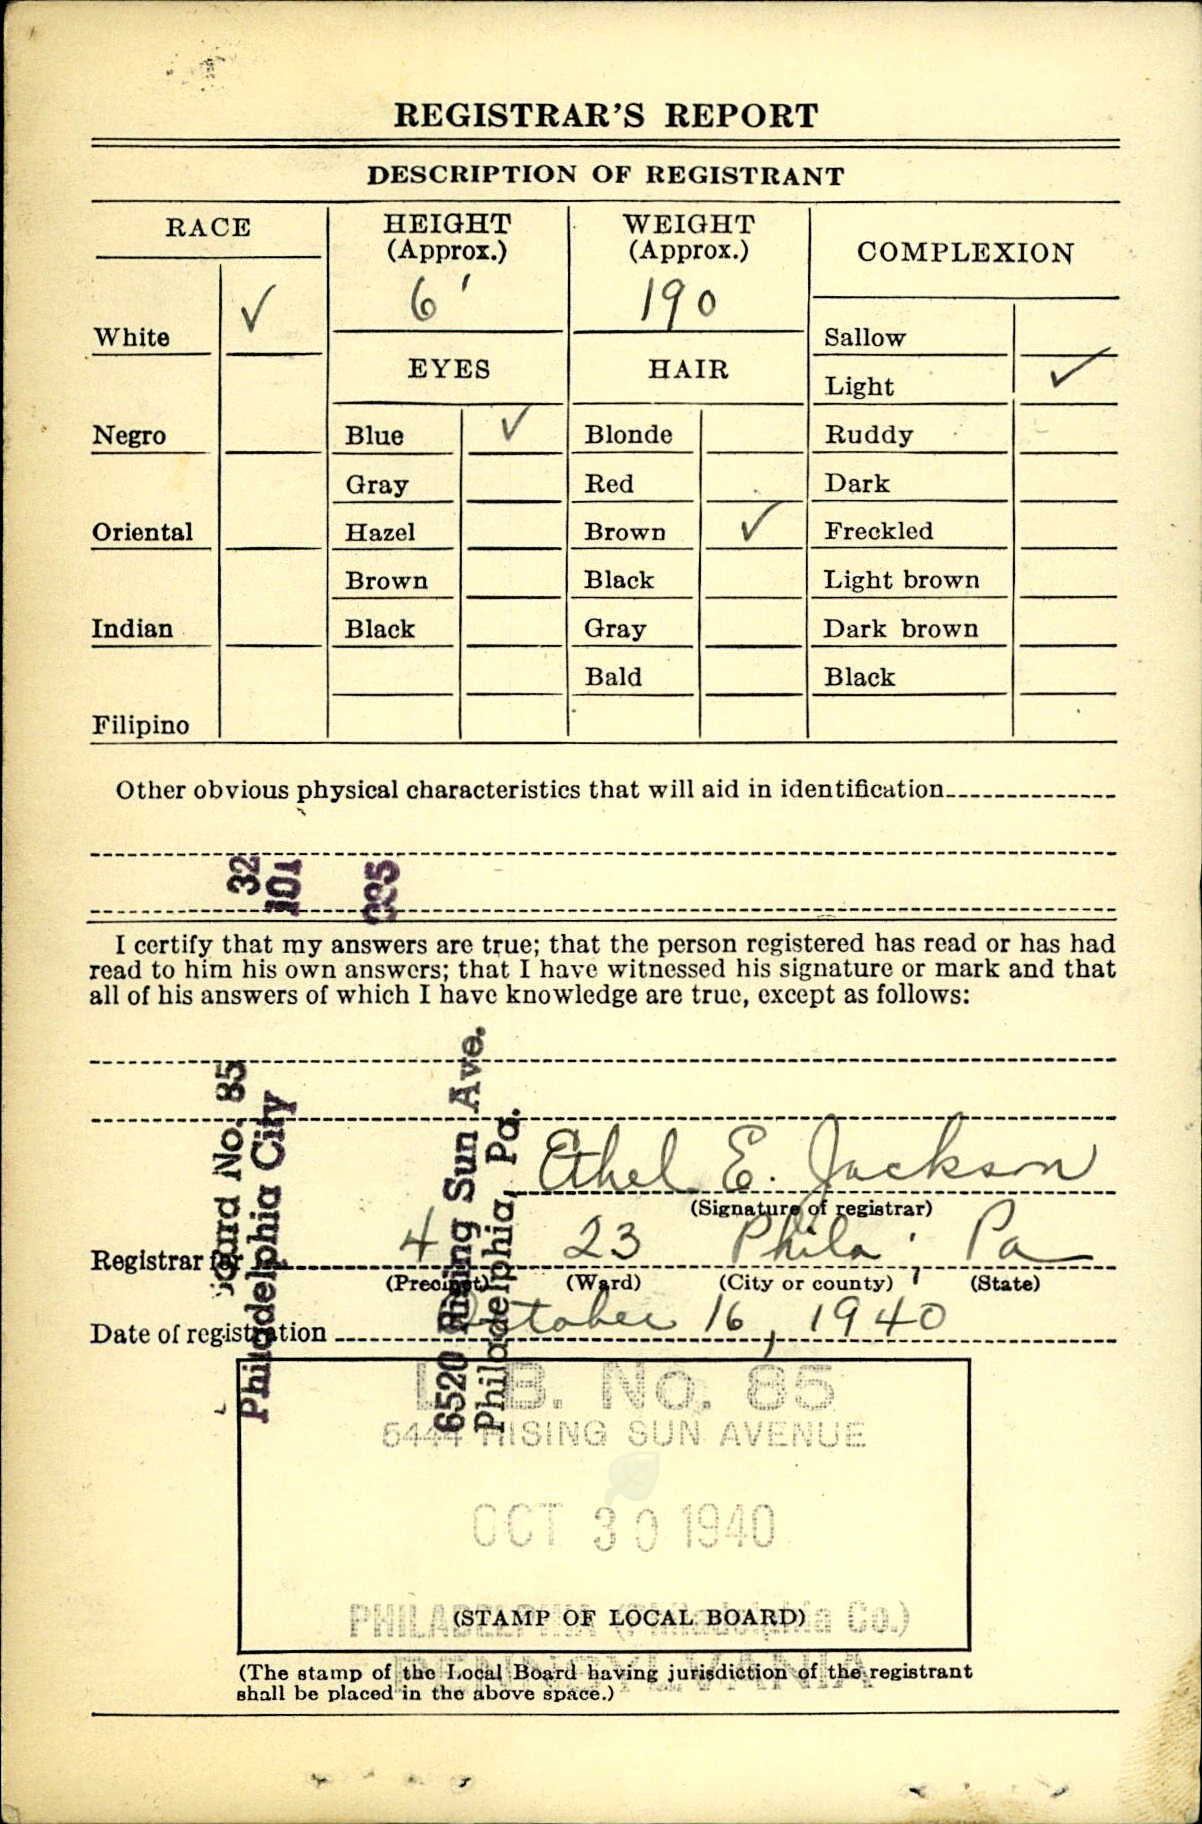 REGISTRAR'S REPORT
DESCRIPTION OF REGISTRANT
RACE
HEIGHT
(Approx.)
WEIGHT
(Approx.)
COMPLEXION
6'
190
White ✓
Sallow
EYES
HAIR
Light ✓
Negro
Blue ✓
Blonde
Ruddy
Gray
Red
Dark
Oriental
Hazel
Brown ✓
Freckled
Brown
Black
Light brown
Indian
Black
Gray
Dark brown
Bald
Black
Filipino
Other obvious physical characteristics that will aid in identification
32
101
035
I certify that my answers are true; that the person registered has read or has had
read to him his own answers; that I have witnessed his signature or mark and that
all of his answers of which I have knowledge are true, except as follows:
No. 85
Philadelphia City
6520 Rising Sun Ave.
Philadelphia, Pa.
Ethel E. Jackson
(Signature of registrar)
Registrar for 4 23 Phila, Pa
(Precinct) (Ward) (City or county) (State)
Date of registration October 16, 1940
L. B. No. 85
5444 RISING SUN AVENUE
OCT 30 1940
(STAMP OF LOCAL BOARD)
PHILADELPHIA (Philadelphia Co.)
PENNSYLVANIA
(The stamp of the Local Board having jurisdiction of the registrant
shall be placed in the above space.)